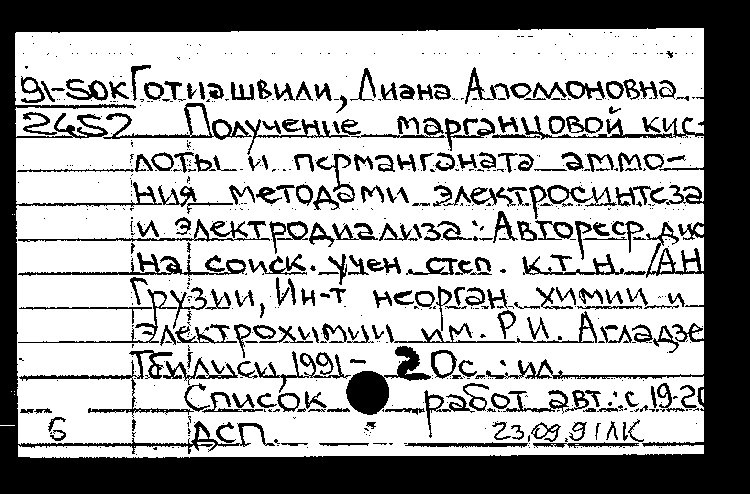 91-50к Готиашвили, Лиана Аполлоновна.
2452 Получение марганцовой кис-
лоты и перманганата аммо-
ния методами электросинтеза
и электродиализа: Автореф. дис
на соиск. учен. степ. к.т.н. /АН
Грузии, Ин-т неорган. химии и
электрохимии им. Р.И. Агладзе
Тбилиси, 1991 - 20с.: ил.
Список работ авт.: с. 19-20
6 ДСП. 23.09.91 ЛК